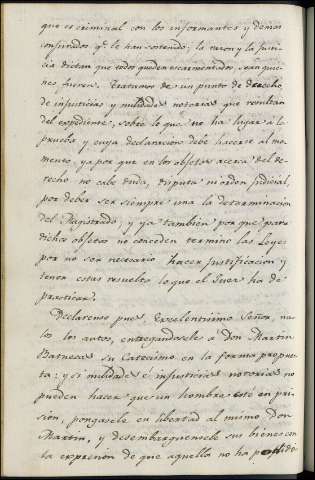 que es criminal con los informantes y demas
conspirados qe. le han sostenido; la razon y la justi-
cia dictan que todos queden escarmentados, sean quie-
nes fueren. Tratamos de un punto de derecho,
de injusticias y nulidades notorias que resultan
del expediente, sobre lo que no ha lugar á la
prueba y cuya declaracion debe hacerse al mo-
mento, ya por que en los objetos acerca del de-
recho no cabe duda, disputa ni orden judicial,
por deber ser siempre una la determinacion
del Magistrado; y ya tambien por que para
dichos objetos no conceden termino las Leyes
por no ser necesario hacer justificacion y
tener estas resuelto lo que el Juez ha de
practicar.
Declarense pues, Excelentisimo Señor, nu-
los los autos, entregandosele á Don Martin
Barneca su Catecismo en la forma propues-
ta: y si nulidades é injusticias notorias no
pueden hacer que un hombre esté en pri-
sion, pongasele en libertad al mismo Don
Martin, y desembarguensele sus bienes con
la expresion de que aquello no ha podido